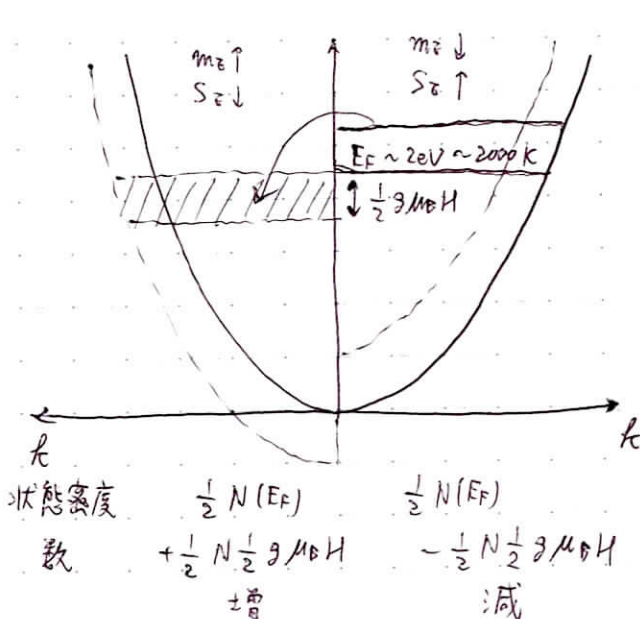 mz↑ mz↓
Sz↓ Sz↑
EF ~ 2eV ~ 2000K
↕ 1/2 gμBH
k k
状態密度 1/2 N(EF) 1/2 N(EF)
数 +1/2 N 1/2 gμBH -1/2 N 1/2 gμBH
増 減